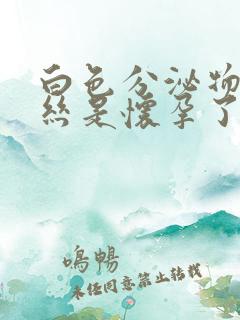 白色分泌物
丝是怀孕了
鳴暢
未经同意禁止转载